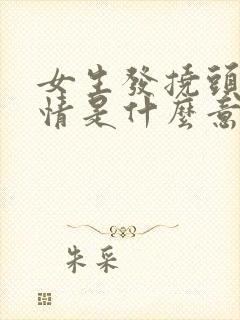 女生發撓頭
情是什麼意
朱采